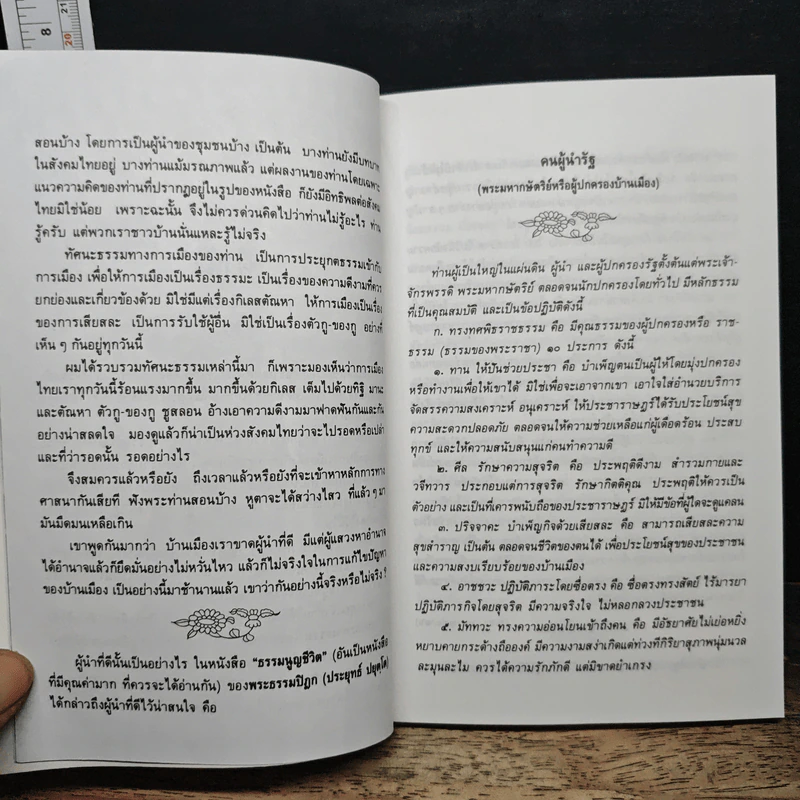 8
21
20
สอนบ้าง โดยการเป็นผู้นำของชุมชนบ้าง เป็นต้น บางท่านยังมีบทบาท
ในสังคมไทยอยู่ บางท่านแม้มรณภาพแล้ว แต่ผลงานของท่านโดยเฉพาะ
แนวความคิดของท่านที่ปรากฏอยู่ในรูปของหนังสือ ก็ยังมีอิทธิพลต่อสังคม
ไทยมิใช่น้อย เพราะฉะนั้น จึงไม่ควรด่วนคิดไปว่าท่านไม่รู้อะไร ท่าน
รู้ครับ แต่พวกเราชาวบ้านนั่นแหละรู้ไม่จริง
ทัศนะธรรมทางการเมืองของท่าน เป็นการประยุกตธรรมเข้ากับ
การเมือง เพื่อให้การเมืองเป็นเรื่องธรรมะ เป็นเรื่องของความดีงามที่ควร
ยกย่องและเกี่ยวข้องด้วย มิใช่มีแต่เรื่องกิเลสตัณหา ให้การเมืองเป็นเรื่อง
ของการเสียสละ เป็นการรับใช้ผู้อื่น มิใช่เป็นเรื่องตัวกู-ของกู อย่างที่
เห็น ๆ กันอยู่ทุกวันนี้
ผมได้รวบรวมทัศนะธรรมเหล่านี้มา ก็เพราะมองเห็นว่าการเมือง
ไทยเราทุกวันนี้ร้อนแรงมากขึ้น มากขึ้นด้วยกิเลส เต็มไปด้วยทิฐิ มานะ
และตัณหา ตัวกู-ของกู ชูสลอน อ้างเอาความดีงามมาฟาดฟันกันและกัน
อย่างน่าสลดใจ มองดูแล้วก็น่าเป็นห่วงสังคมไทยว่าจะไปรอดหรือเปล่า
และที่ว่ารอดนั้น รอดอย่างไร
จึงสมควรแล้วหรือยัง ถึงเวลาแล้วหรือยังที่จะเข้าหาหลักการทาง
ศาสนากันเสียที ฟังพระท่านสอนบ้าง หูตาจะได้สว่างไสว ที่แล้ว ๆ มา
มันมืดมนเหลือเกิน
เขาพูดกันมากว่า บ้านเมืองเราขาดผู้นำที่ดี มีแต่ผู้แสวงหาอำนาจ
ได้อำนาจแล้วก็ยึดมั่นอย่างไม่หวั่นไหว แล้วก็ไม่จริงใจในการแก้ไขปัญหา
ของบ้านเมือง เป็นอย่างนี้มาช้านานแล้ว เขาว่ากันอย่างนี้จริงหรือไม่จริง ?
ผู้นำที่ดีนั้นเป็นอย่างไร ในหนังสือ “ธรรมนูญชีวิต” (อันเป็นหนังสือ
ที่มีคุณค่ามาก ที่ควรจะได้อ่านกัน) ของพระธรรมปิฎก (ประยุทธ์ ปยุตฺโต)
ได้กล่าวถึงผู้นำที่ดีไว้น่าสนใจ คือ
คนผู้นำรัฐ
(พระมหากษัตริย์หรือผู้ปกครองบ้านเมือง)
ท่านผู้เป็นใหญ่ในแผ่นดิน ผู้นำ และผู้ปกครองรัฐตั้งต้นแต่พระเจ้า-
จักรพรรดิ พระมหากษัตริย์ ตลอดจนนักปกครองโดยทั่วไป มีหลักธรรม
ที่เป็นคุณสมบัติ และเป็นข้อปฏิบัติดังนี้
ก. ทรงทศพิธราชธรรม คือ มีคุณธรรมของผู้ปกครองหรือ ราช-
ธรรม (ธรรมของพระราชา) ๑๐ ประการ ดังนี้
๑. ทาน ให้ปันช่วยประชา คือ บำเพ็ญตนเป็นผู้ให้โดยมุ่งปกครอง
หรือทำงานเพื่อให้เขาได้ มิใช่เพื่อจะเอาจากเขา เอาใจใส่อำนวยบริการ
จัดสรรความสงเคราะห์ อนุเคราะห์ ให้ประชาราษฎร์ได้รับประโยชน์สุข
ความสะดวกปลอดภัย ตลอดจนให้ความช่วยเหลือแก่ผู้เดือดร้อน ประสบ
ทุกข์ และให้ความสนับสนุนแก่คนทำความดี
๒. ศีล รักษาความสุจริต คือ ประพฤติดีงาม สำรวมกายและ
วจีทวาร ประกอบแต่การสุจริต รักษากิตติคุณ ประพฤติให้ควรเป็น
ตัวอย่าง และเป็นที่เคารพนับถือของประชาราษฎร์ มิให้มีข้อที่ผู้ใดจะดูแคลน
๓. ปริจจาคะ บำเพ็ญกิจด้วยเสียสละ คือ สามารถเสียสละความ
สุขสำราญ เป็นต้น ตลอดจนชีวิตของตนได้ เพื่อประโยชน์สุขของประชาชน
และความสงบเรียบร้อยของบ้านเมือง
๔. อาชชวะ ปฏิบัติภาระโดยซื่อตรง คือ ซื่อตรงทรงสัตย์ ไร้มารยา
ปฏิบัติภารกิจโดยสุจริต มีความจริงใจ ไม่หลอกลวงประชาชน
๕. มัททวะ ทรงความอ่อนโยนเข้าถึงคน คือ มีอัธยาศัยไม่เย่อหยิ่ง
หยาบคายกระด้างถือองค์ มีความงามสง่าเกิดแต่ท่วงทีกิริยาสุภาพนุ่มนวล
ละมุนละไม ควรได้ความรักภักดี แต่มิขาดยำเกรง